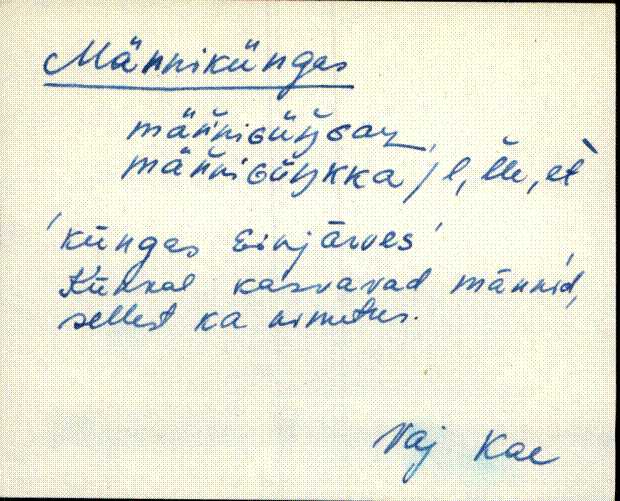 Männiküngas
männiɢüŋɢaz,
männiɢüŋkka / l, lle, et
'küngas Sinjärves'
Künkal kasvavad männid,
sellest ka nimetus.
Vaj Kae